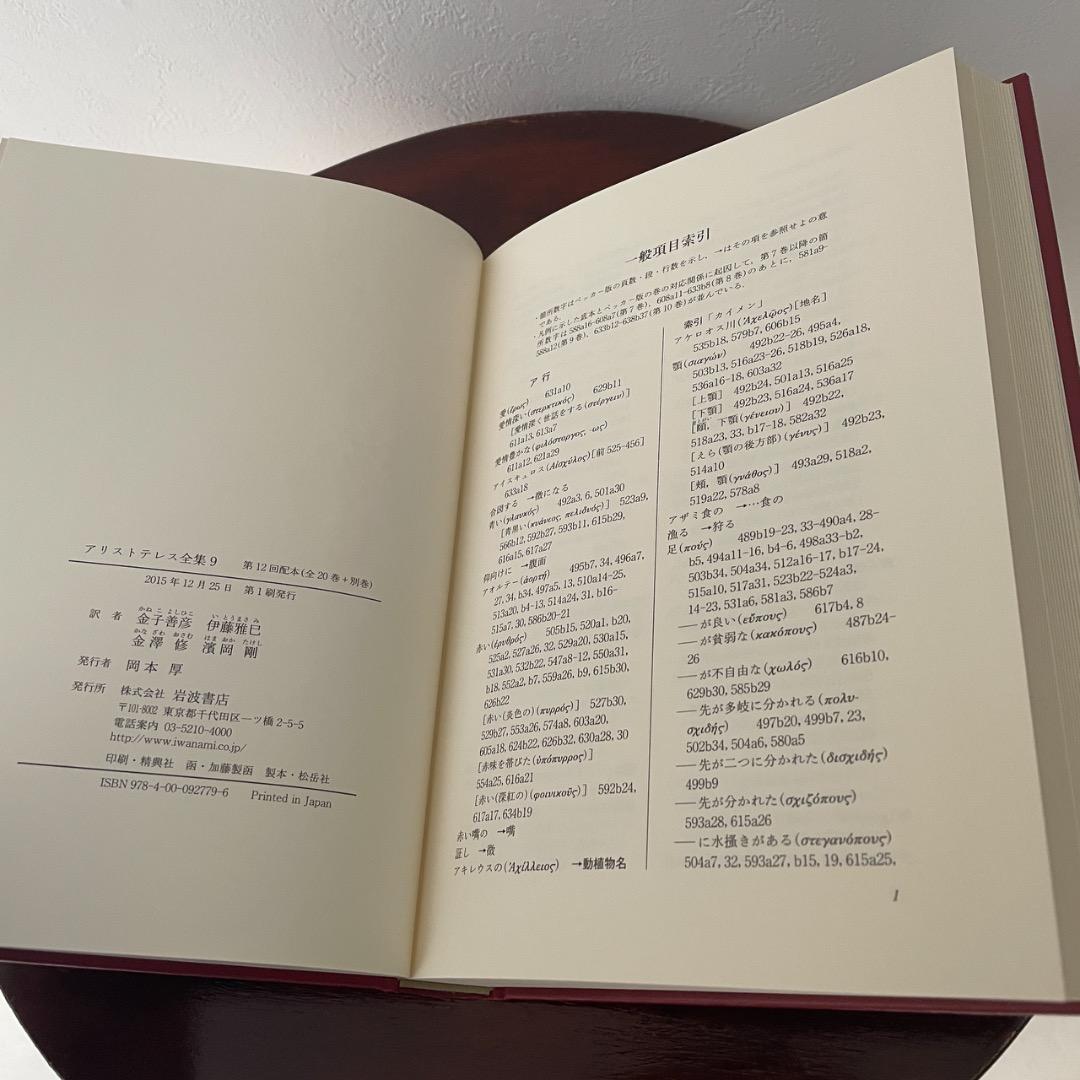 アリストテレス全集 9　第12回配本(全20巻＋別巻)
2015年12月25日　第1刷発行
訳者　金子善彦　伊藤雅巳
金澤修　濱岡剛
発行者　岡本厚
発行所　株式会社 岩波書店
〒101-8002 東京都千代田区一ツ橋 2-5-5
電話案内 03-5210-4000
http://www.iwanami.co.jp/
印刷・精興社　函・加藤製函　製本・松岳社
ISBN 978-4-00-092779-6　Printed in Japan
一般項目索引
・箇所数字はベッカー版の頁数・段・行数を示し，→はその項を参照せよの意
である．
・凡例に示した底本とベッカー版の巻の対応関係に起因して，第7巻以降の箇
所数字は588a16-608a7(第7巻)，608a11-633b8(第8巻)のあとに，581a9-
588a12(第9巻)，633b12-638b37(第10巻)が並んでいる．
ア行
愛(ἔρως)　631a10
愛情深い(στερκτικός)　629b11
［愛情深く世話をする(στέργειν)］
611a13, 613a7
愛情豊かな(φιλόστοργος, -ως)
611a12, 621a29
アイスキュロス(Αἰσχύλος)［前525-456］
633a18
合図する　→徴になる
青い(γλαυκός)　492a3, 6, 501a30
［青黒い(κυάνεος, πελιδνός)］　523a9,
566b12, 592b27, 593b11, 615b29,
616a15, 617a27
仰向けに　→腹面
アオルテー(ἀορτή)　495b7, 34, 496a7,
27, 34, b34, 497a5, 13, 510a14-25,
513a20, b4-13, 514a24, 31, b16-
515a7, 30, 586b20-21
赤い(ἐρυθρός)　505b15, 520a1, b20,
525a2, 527a26, 32, 529a20, 530a15,
531a30, 532b22, 547a8-12, 550a31,
b18, 552a2, b7, 559a26, b9, 615b30,
626b22
［赤い(炎色の)(πυρρός)］　527b30,
529b27, 553a26, 574a8, 603a20,
605a18, 624b22, 626b32, 630a28, 30
［赤味を帯びた(ὑπόπυρρος)］
554a25, 616a21
［赤い(深紅の)(φοινικοῦς)］　592b24,
617a17, 634b19
赤い嘴の　→嘴
証し　→徴
アキレウスの(Ἀχίλλειος)　→動植物名
索引「カイメン」
アケロオス川(Ἀχελῷος)［地名］
535b18, 579b7, 606b15
顎(σιαγών)　492b22-26, 495a4,
503b13, 516a23-26, 518b19, 526a18,
536a16-18, 603a32
［上顎］　492b24, 501a13, 516a25
［下顎］　492b23, 516a24, 536a17
［頤，下顎(γένειον)］　492b22,
518a23, 33, b17-18, 582a32
［えら(顎の後方部)(γένυς)］　492b23,
514a10
［頬，顎(γνάθος)］　493a29, 518a2,
519a22, 578a8
アザミ食の　→…食の
漁る　→狩る
足(πούς)　489b19-23, 33-490a4, 28-
b5, 494a11-16, b4-6, 498a33-b2,
503b34, 504a34, 512a16-17, b17-24,
515a10, 517a31, 523b22-524a3,
14-23, 531a6, 581a3, 586b7
――が良い(εὔπους)　617b4, 8
――が貧弱な(κακόπους)　487b24-
26
――が不自由な(χωλός)　616b10,
629b30, 585b29
――先が多岐に分かれる(πολυ-
σχιδής)　497b20, 499b7, 23,
502b34, 504a6, 580a5
――先が二つに分かれた(δισχιδής)
499b9
――先が分かれた(σχιζόπους)
593a28, 615a26
――に水掻きがある(στεγανόπους)
504a7, 32, 593a27, b15, 19, 615a25,
1